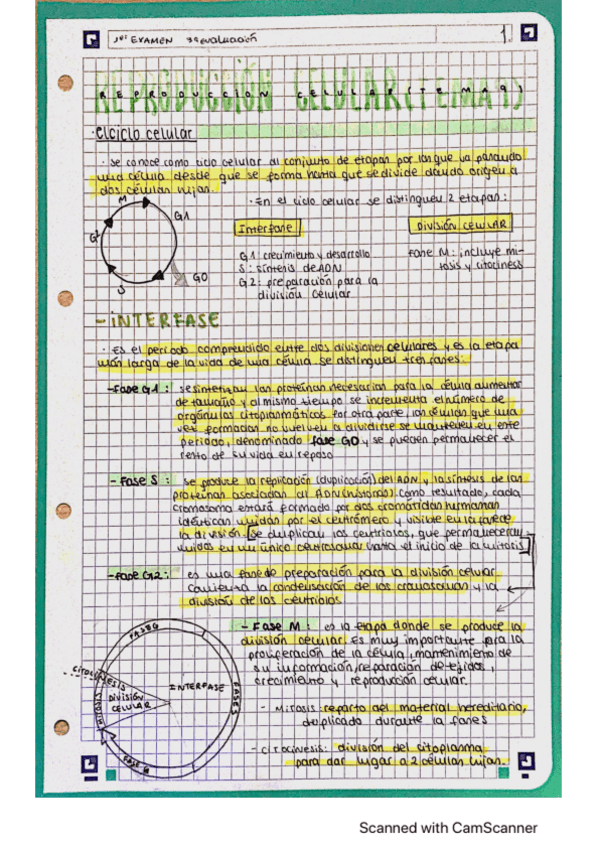 1er EXAMEN 3ª evaluación
1.
REPRODUCCIÓN CELULAR (TEMA 9)
·El ciclo celular
· Se conoce como ciclo celular al conjunto de etapas por las que va pasando
una célula desde que se forma hasta que se divide dando origen a
dos células hijas.
· En el ciclo celular se distinguen 2 etapas:
M
G1
G2
S
G0
Interfase
G1: crecimiento y desarrollo
S: síntesis de ADN
G2: preparación para la
división celular
DIVISIÓN CELULAR
fase M: incluye mi-
tosis y citocinesis
- INTERFASE
· Es el periodo comprendido entre dos divisiones celulares y es la etapa
más larga de la vida de una célula se distinguen tres fases:
-Fase G1: se sintetizan las proteínas necesarias para la célula aumentar
de tamaño y al mismo tiempo se incrementa el número de
orgánulos citoplasmáticos por otra parte, las células que una
vez formadas no vuelven a dividirse se mantienen en este
periodo, denominado fase G0 y se pueden permanecer el
resto de su vida en reposo
- Fase S: se produce la replicación (duplicación) del ADN y la síntesis de las
proteínas asociadas al ADN (histonas) como resultado, cada
cromosoma estará formado por dos cromátidas hermanas
idénticas unidas por el centrómero y visible en la fase de
la división. Se duplican los centriolos, que permanecerán
unidos en un único centrosoma hasta el inicio de la mitosis
-fase G2: es una fase de preparación para la división celular
comienza la condensación de los cromosomas y la
división de los centriolos
- Fase M: es la etapa donde se produce la
división celular. Es muy importante para la
proliferación de la célula, mantenimiento de
su información, reparación de tejidos,
crecimiento y reproducción celular.
- Mitosis: reparto del material hereditario,
duplicado durante la fase S
- Citocinesis: división del citoplasma
para dar lugar a 2 células hijas.
FASE G
CITOCINESIS
MITOSIS
DIVISIÓN
CELULAR
INTERFASE
FASE S
FASE G
Scanned with CamScanner